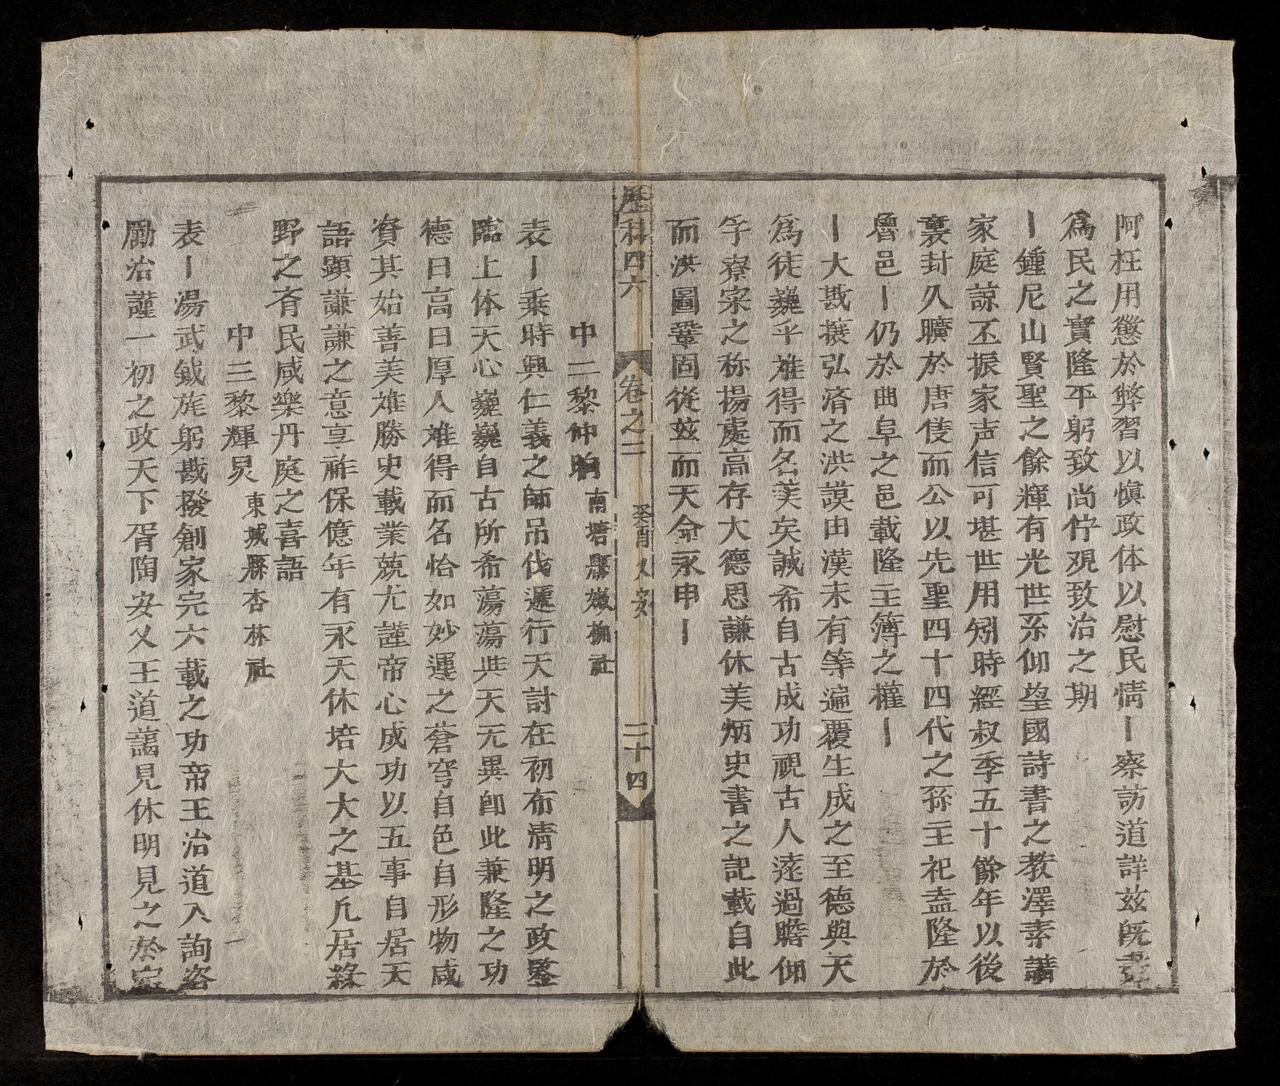 阿枉用懲於弊習以愼政体以慰民情〡察訪道詳玆旣
爲民之實隆平躬致尚佇观致治之期
〡鍾尼山賢聖之餘輝有光世系仰望國詩書之教澤素講
家庭諒丕振家声信可堪世用矧時經叔季五十餘年以後
襃封久曠於唐僕而公以先聖四十四代之孫主祀盍隆於
魯邑〡仍於曲阜之邑載隆主簿之權〡
〡大戡撥弘済之洪謨由漢末有等遍覆生成之至德與天
爲徒巍乎难得而名羙矣誠希自古成功視古人逺過瞻仰
乎寮寀之称揚處高存大德思謙休美炳史書之記載自此
而洪圖鞏固從玆而天命永申〡
歷科四六 卷之二 癸酉乂安 二十四
中二黎仲 南塘縣 社
表〡乗時興仁義之師吊伐遲行天討在初布清明之政鑒
臨上体天心巍巍自古所希蕩蕩共天无異卽此兼隆之功
德曰高曰厚人难得而名恰如妙運之蒼穹自色自形物咸
資其始善美难勝史載業兢尤謹帝心成功以五事自居天
語顕謙謙之意享祚保億年有永天休培大大之基凣居綠
野之育民咸樂丹庭之喜語
中三黎輝炅 東城縣杏林社
表〡湯武鉞旄躬戡撥創家完六載之功帝王治道入詢咨
勵治謹一初之政天下胥陶安乂王道藹見休明見之於宸